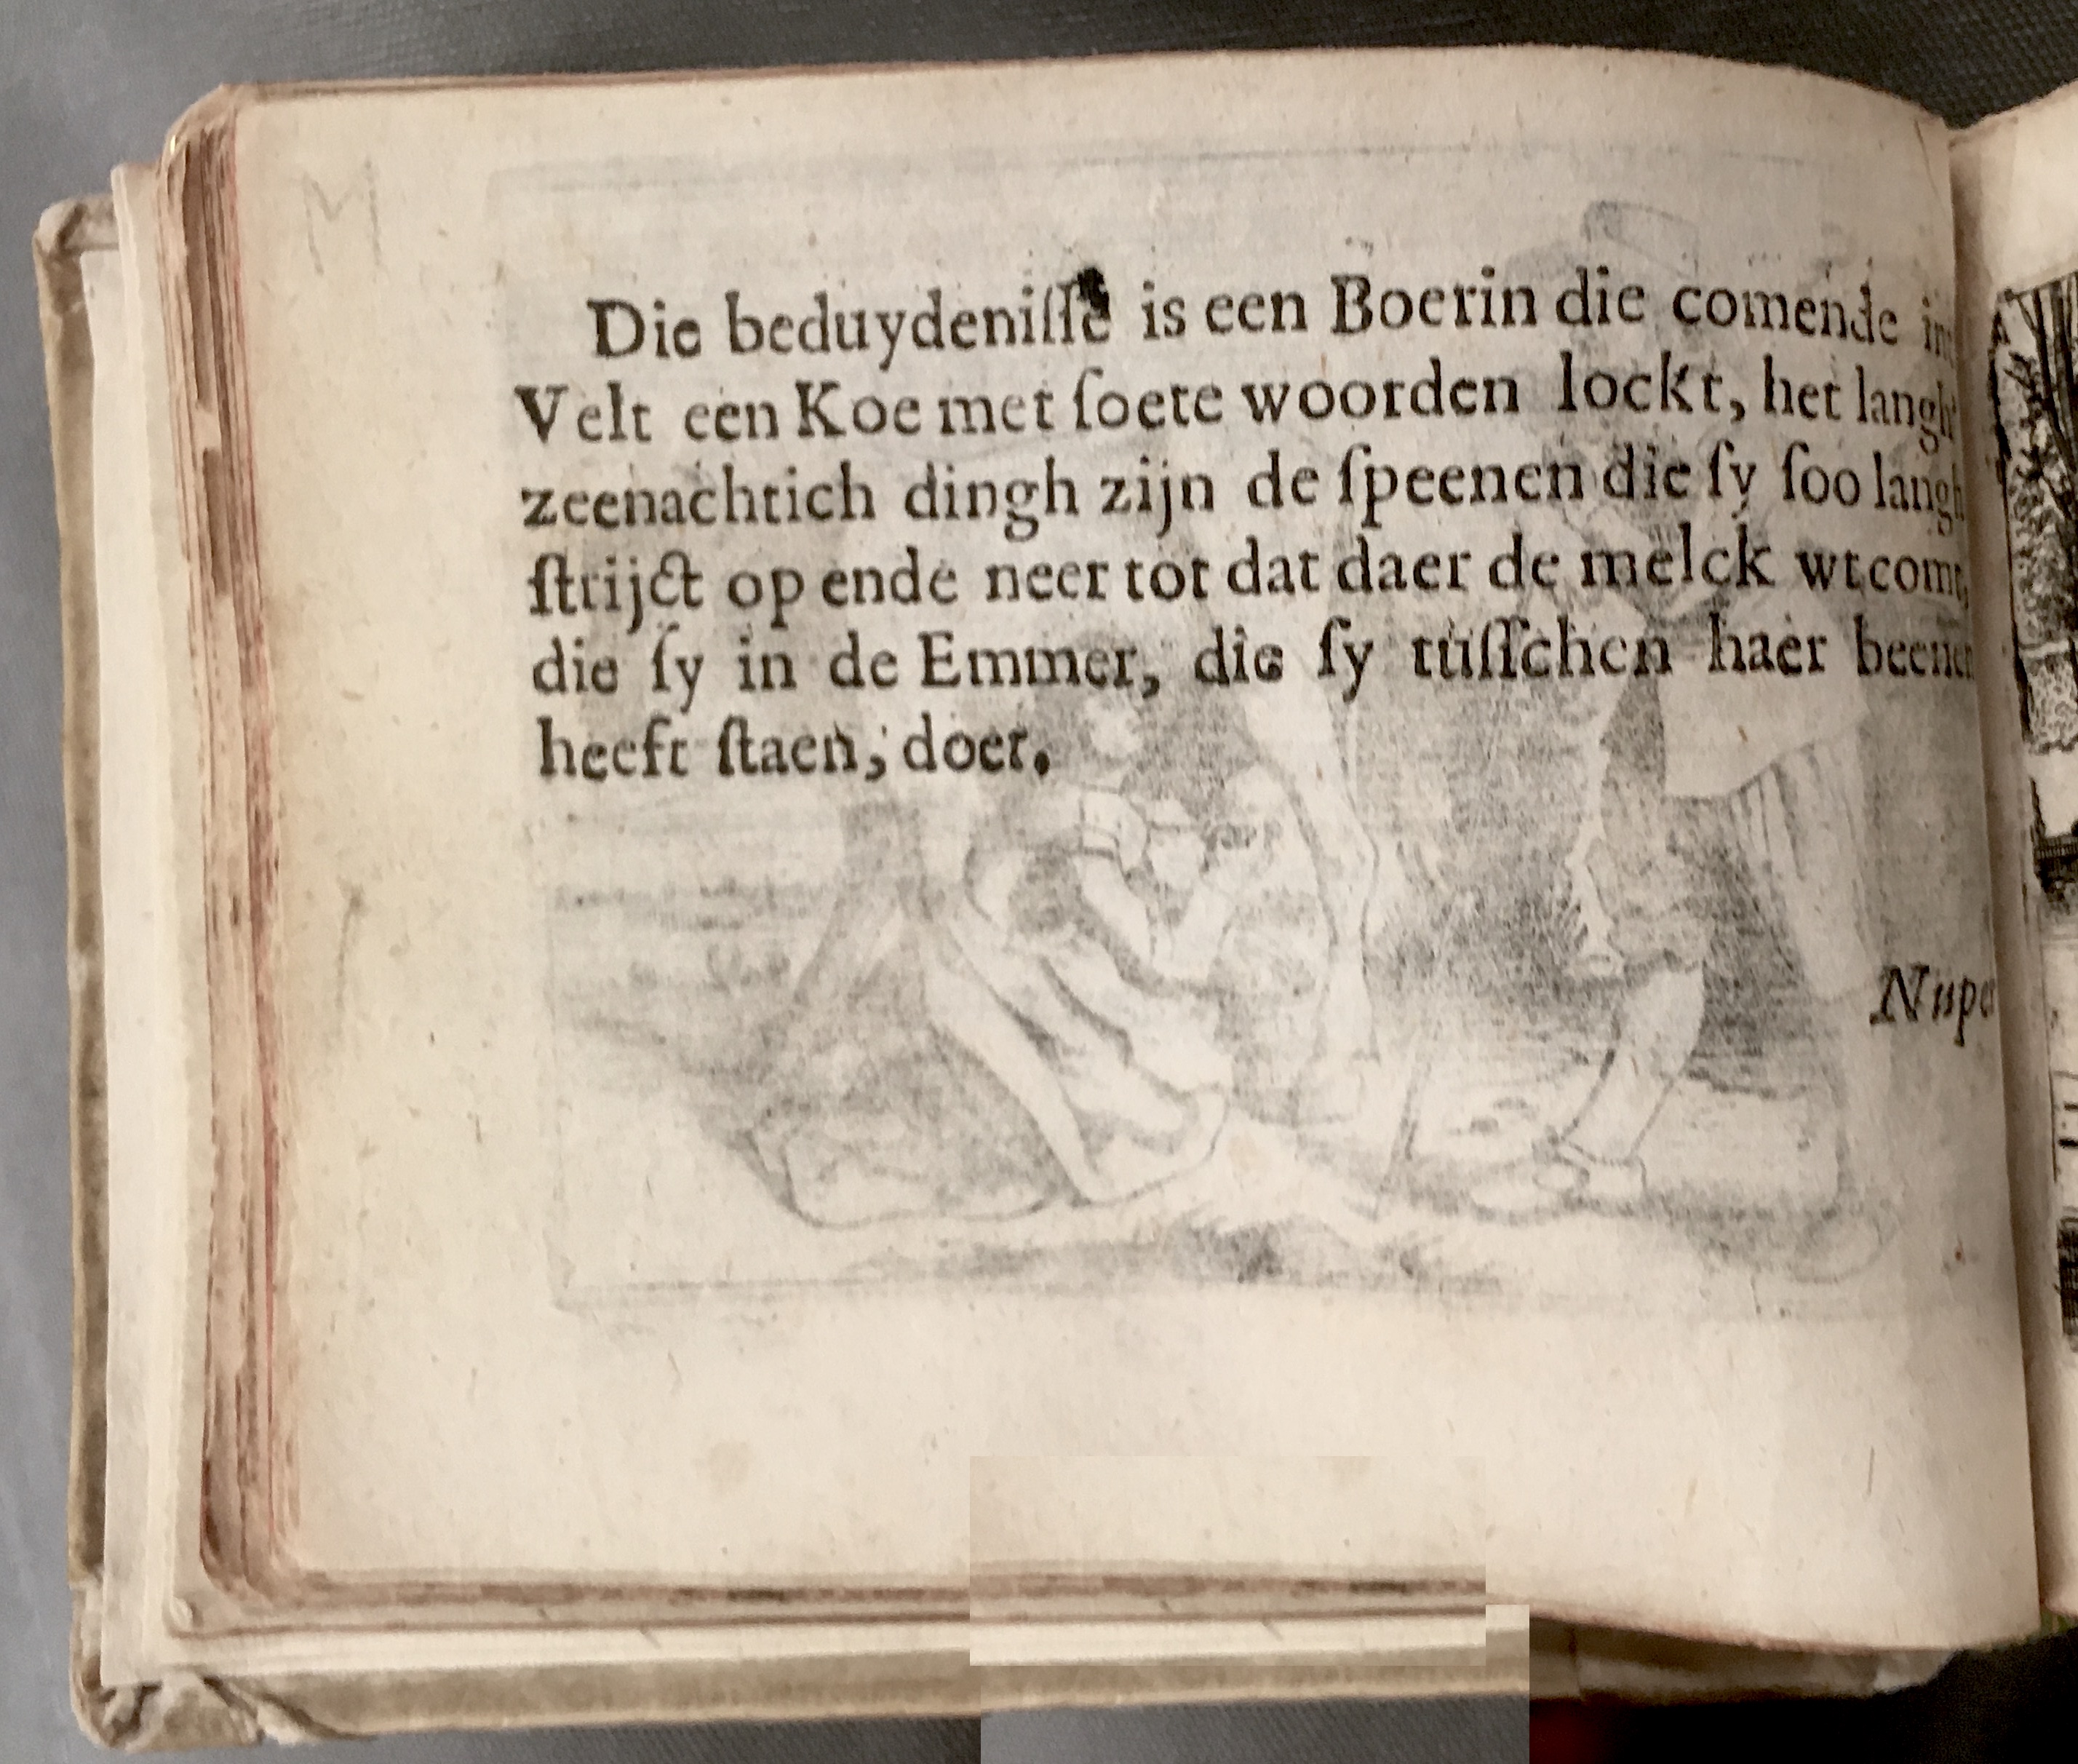 M
Die beduydeniſſe is een Boerin die comende in
Velt een Koe met ſoete woorden lockt, het langh
zeenachtich dingh zijn de ſpeenen die ſy ſoo langh
ſtrijct op ende neer tot dat daer de melck wt comt,
die ſy in de Emmer, die ſy tuſſchen haer beenen
heeft ſtaen, doet.